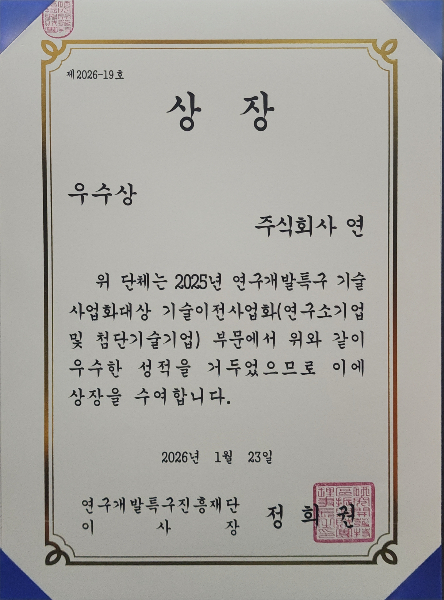 제2026-19호
상 장
우수상
주식회사 연
위 단체는 2025년 연구개발특구 기술
사업화대상 기술이전사업화(연구소기업
및 첨단기술기업) 부문에서 위와 같이
우수한 성적을 거두었으므로 이에
상장을 수여합니다.
2026년 1월 23일
연구개발특구진흥재단
이 사 장 정 희 권